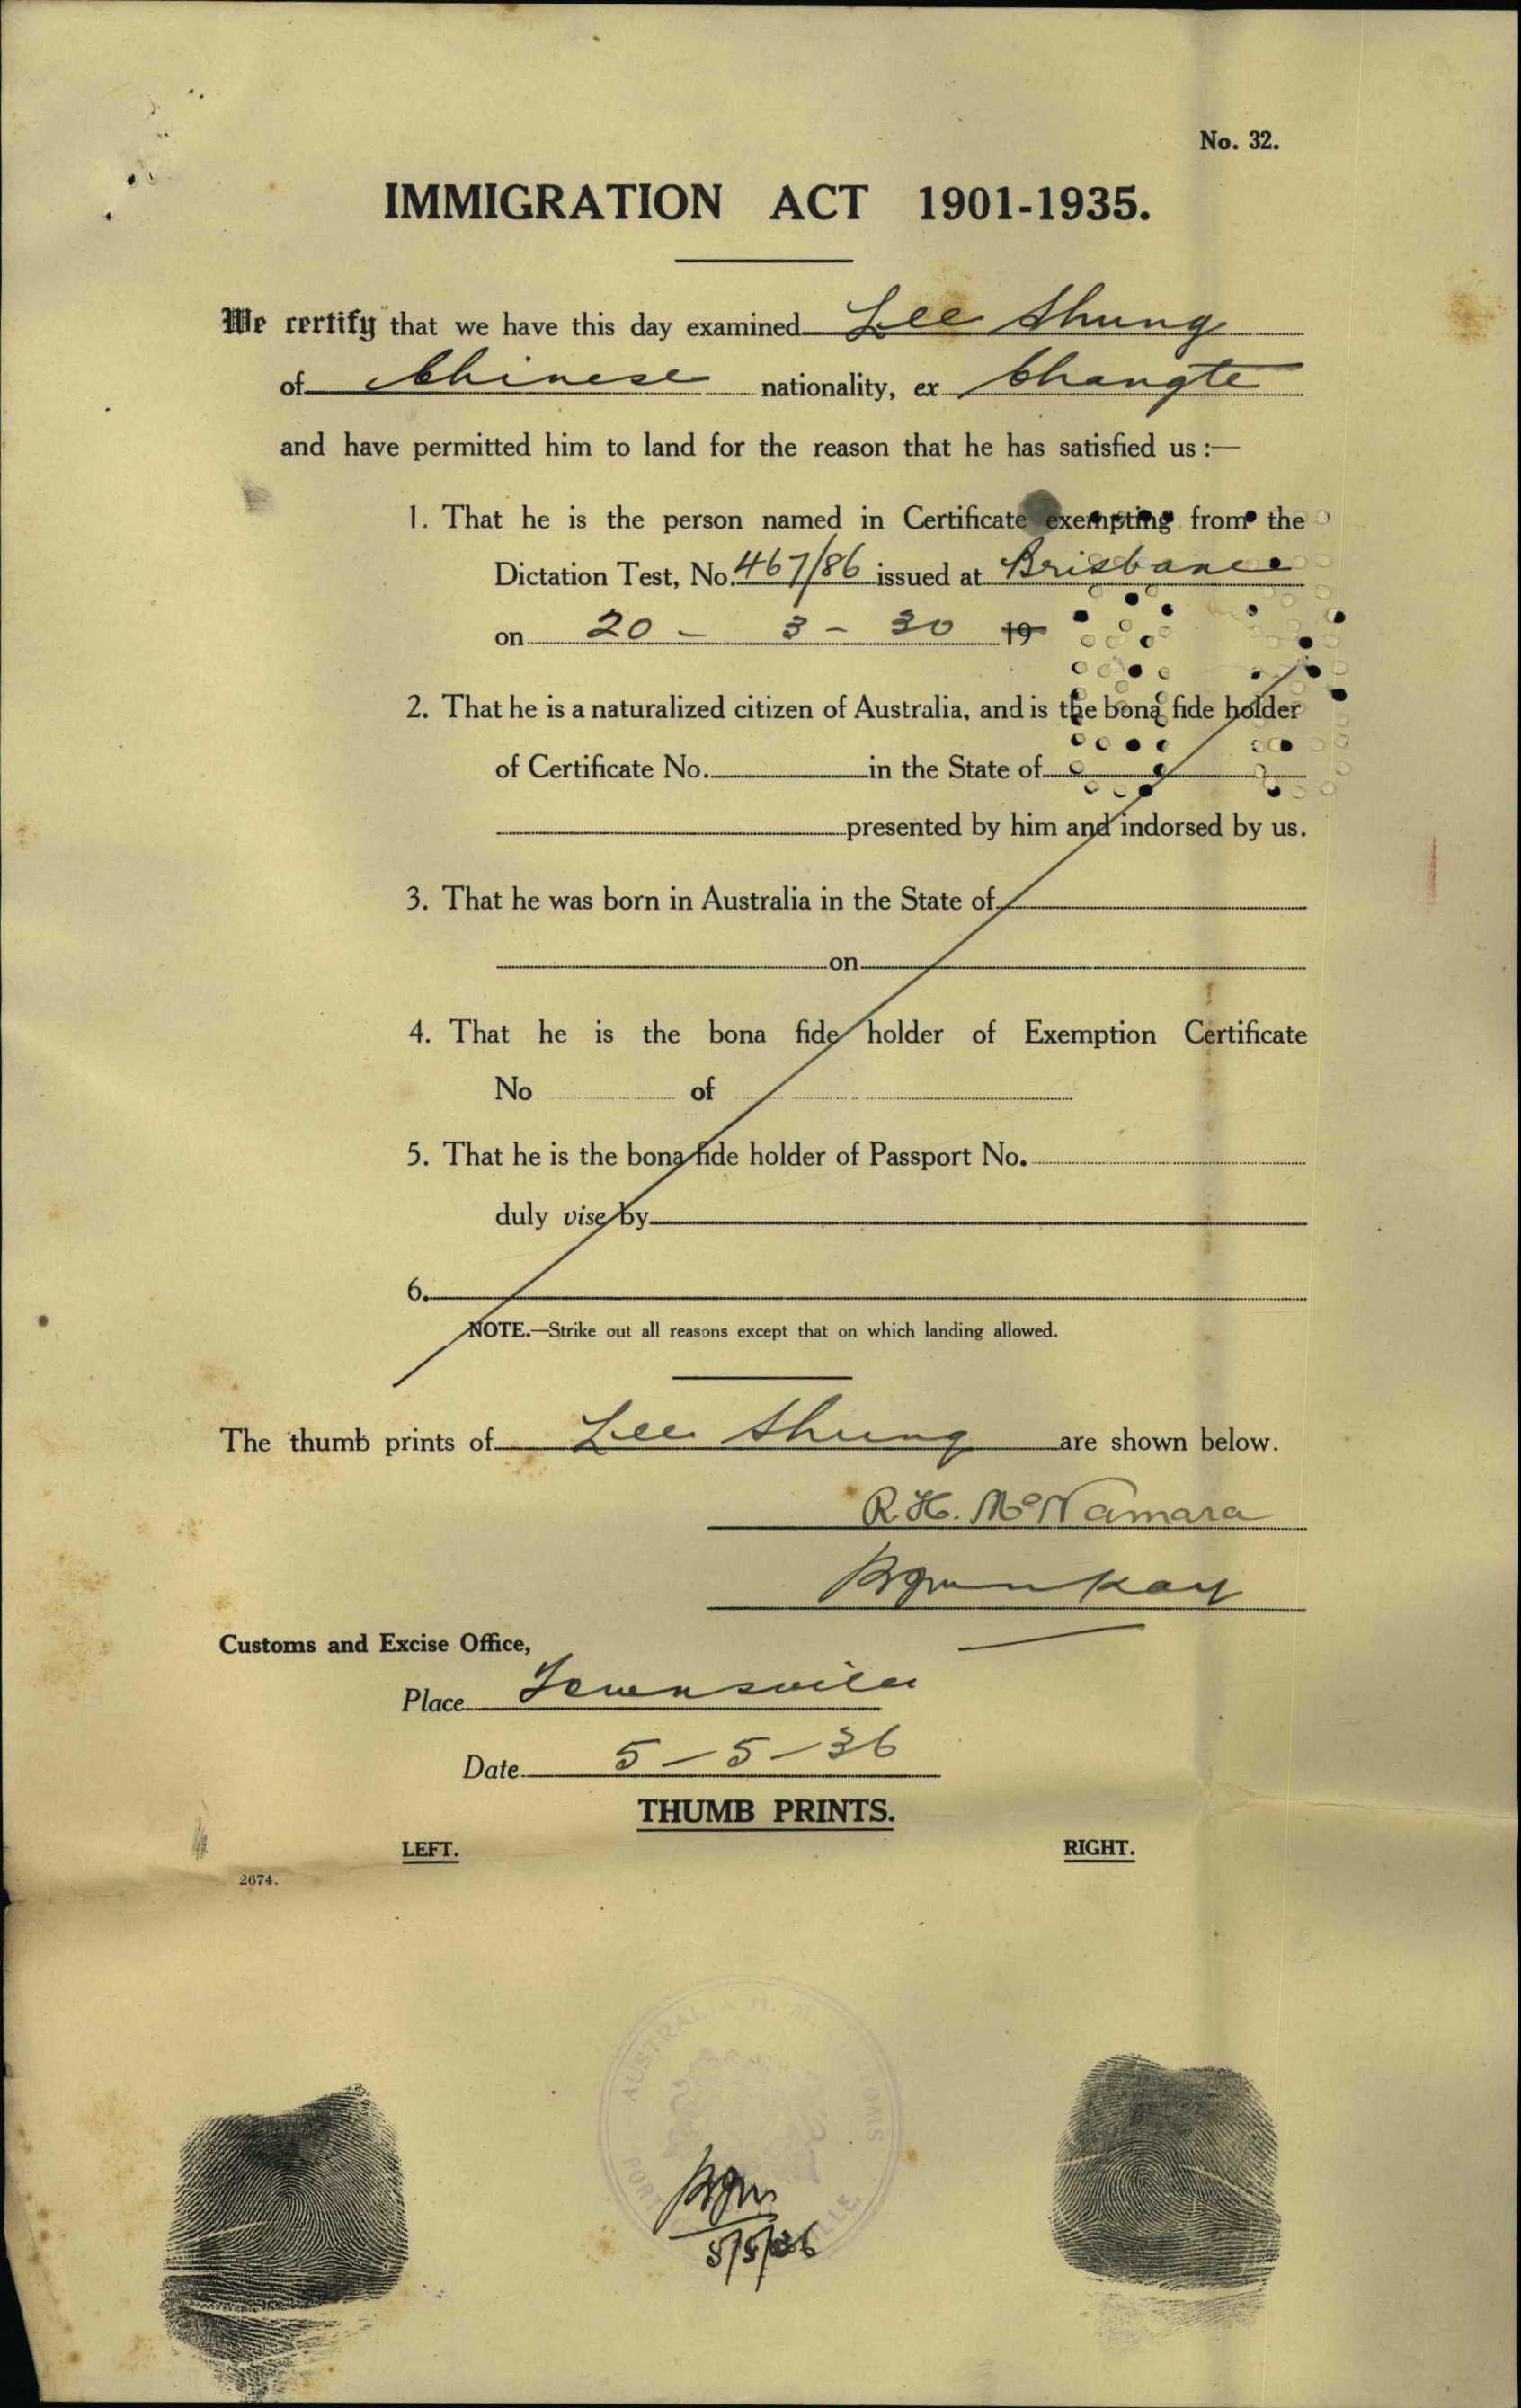 No. 32.
IMMIGRATION ACT 1901-1935.
We certify that we have this day examined Lee Shung
of Chinese nationality, ex Changte
and have permitted him to land for the reason that he has satisfied us :—
1. That he is the person named in Certificate exempting from the
Dictation Test, No. 467/86 issued at Brisbane
on 20 - 3 - 30 19
2. That he is a naturalized citizen of Australia, and is the bona fide holder
of Certificate No. in the State of
presented by him and indorsed by us.
3. That he was born in Australia in the State of
on
4. That he is the bona fide holder of Exemption Certificate
No of
5. That he is the bona fide holder of Passport No.
duly vise by
6.
NOTE.—Strike out all reasons except that on which landing allowed.
The thumb prints of Lee Shung are shown below.
R. H. McNamara
Customs and Excise Office,
Place Townsville
Date 5 - 5 - 36
THUMB PRINTS.
LEFT. RIGHT.
2674.
AUSTRALIA H. M.
5/5/36